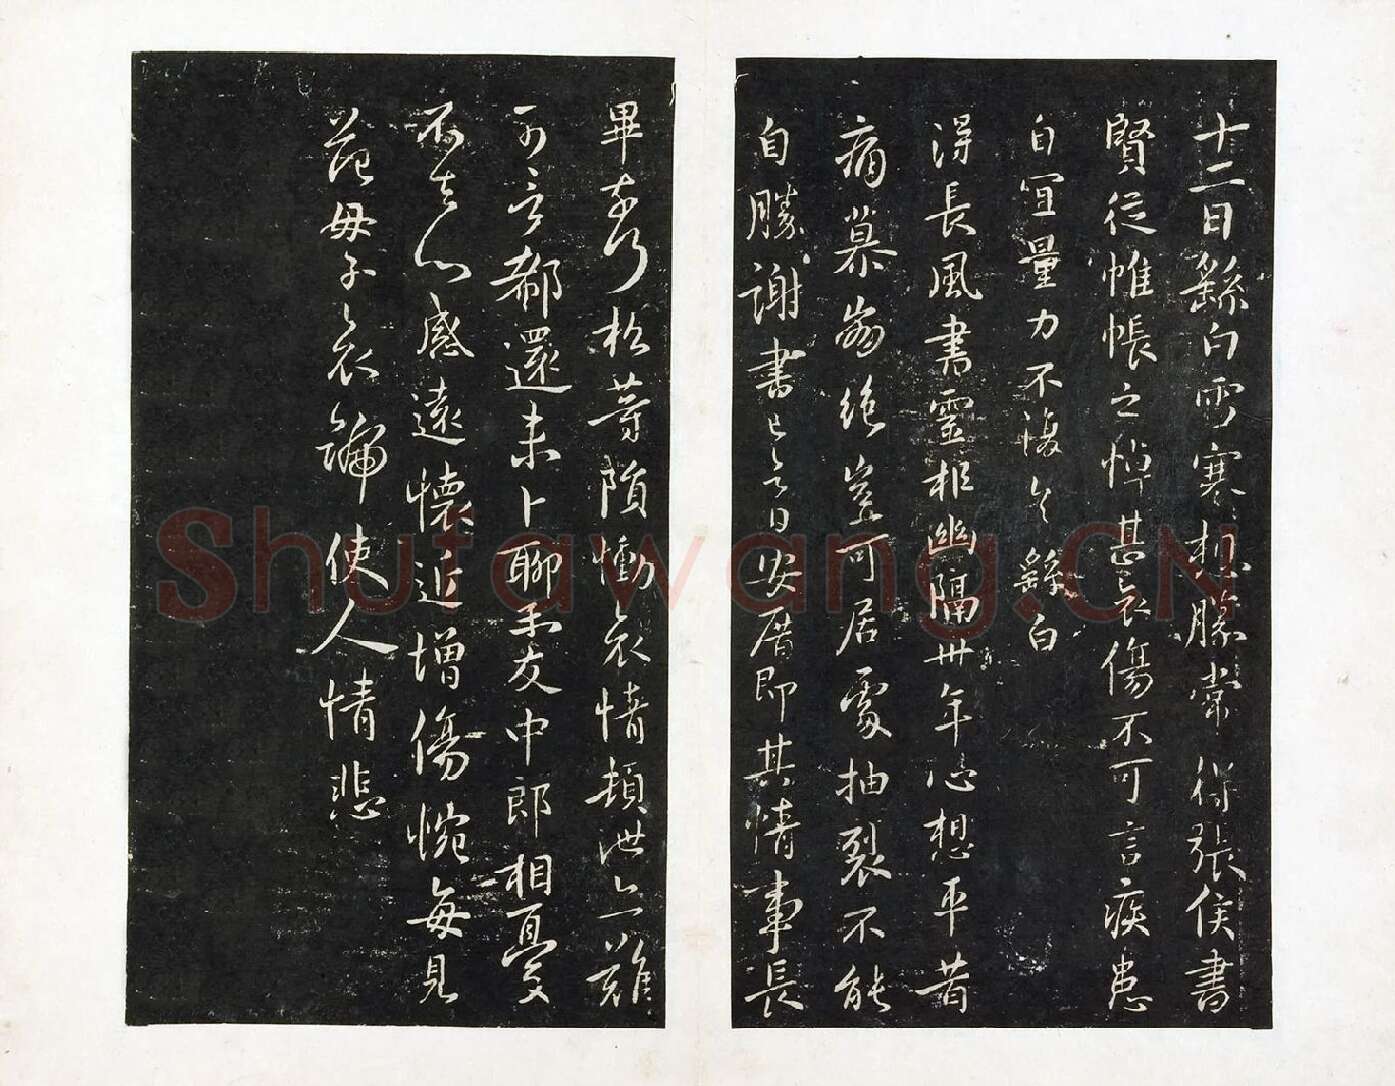 十二日繇白雪寒想勝常得張侯書
賢從帷帳之悼甚哀傷不可言疾患
自宜量力不復具繇白
得長風書靈柩幽隔卅年心想平昔
痛慕崩絕豈可居處抽裂不能
自勝謝書已令日安厝即其情事長
畢奉行松等隕慟哀情頓泄亦難
可言郗還未卜聊示友中郎相憂
不去心感遠懷近增傷惋每見
范母子哀號使人情悲
Shufawang.CN